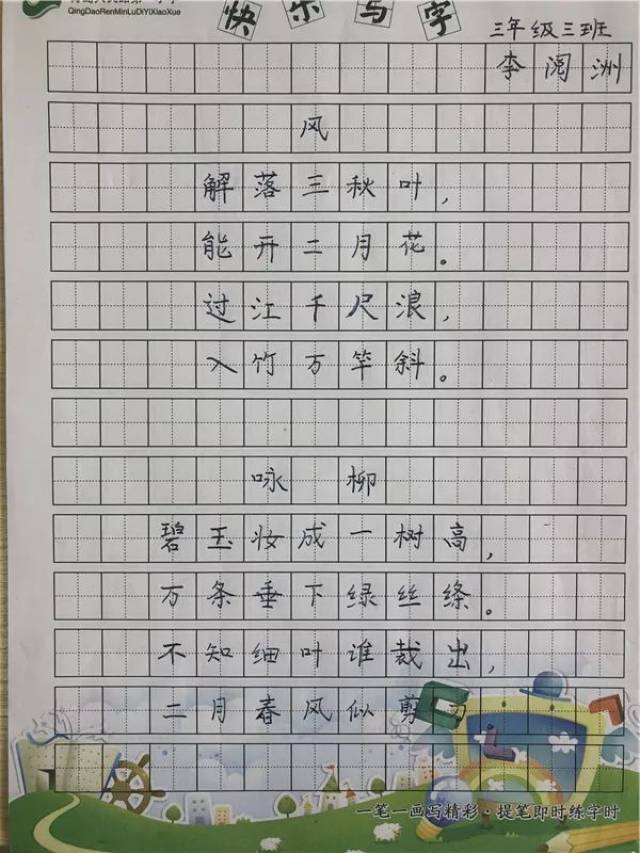 QingDaoRenMinLuDiYiXiaoXue
快乐写字
三年级三班
李阅洲
风
解落三秋叶，
能开二月花。
过江千尺浪，
入竹万竿斜。
咏柳
碧玉妆成一树高，
万条垂下绿丝绦。
不知细叶谁裁出，
二月春风似剪刀
一笔一画写精彩·提笔即时练字时